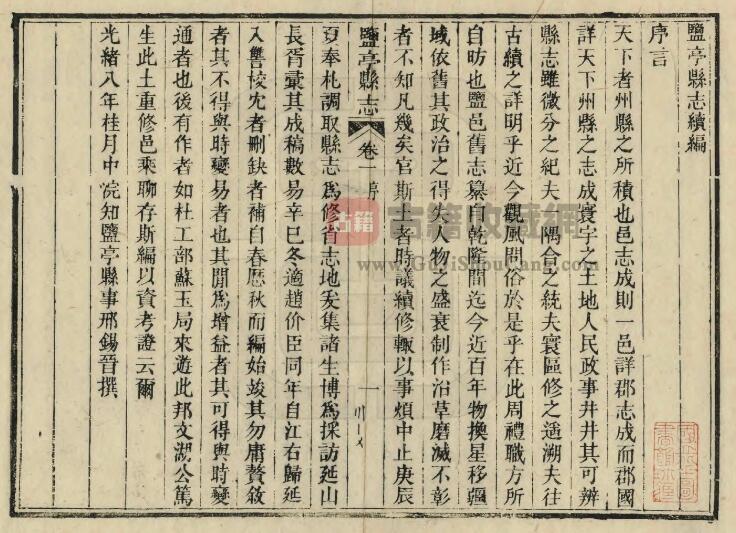 鹽亭縣志續編
序言
天下者州縣之所積也邑志成則一邑詳郡志成而郡國
詳天下州縣之志成寰宇之土地人民政事井井其可辨
縣志雖微分之紀夫一隅合之統夫寰區修之適溯夫往
古績之詳明乎近今觀風問俗於是乎在此周禮職方所
自昉也鹽邑舊志纂自乾隆間迄今近百年物換星移疆
域依舊其政治之得失人物之盛衰制作治草磨滅不彰
者不知凡幾矣官斯土者時議續修輒以事煩中止庚辰
鹽亭縣志 卷一序 一
夏奉札調取縣志爲修省志地爰集諸生博爲採訪延山
長胥彙其成稿數易辛巳冬適趙价臣同年自江右歸延
入讐校冗者刪缺者補自春歷秋而編始竣其勿庸贅敘
者其不得與時變易者也其閒爲增益者其可得與時變
通者也後有作者如杜工部蘇玉局來遊此邦文湖公篤
生此土重修邑乘聊存斯編以資考證云爾
光緒八年桂月中浣知鹽亭縣事邢錫晉撰
古籍
古籍收藏網